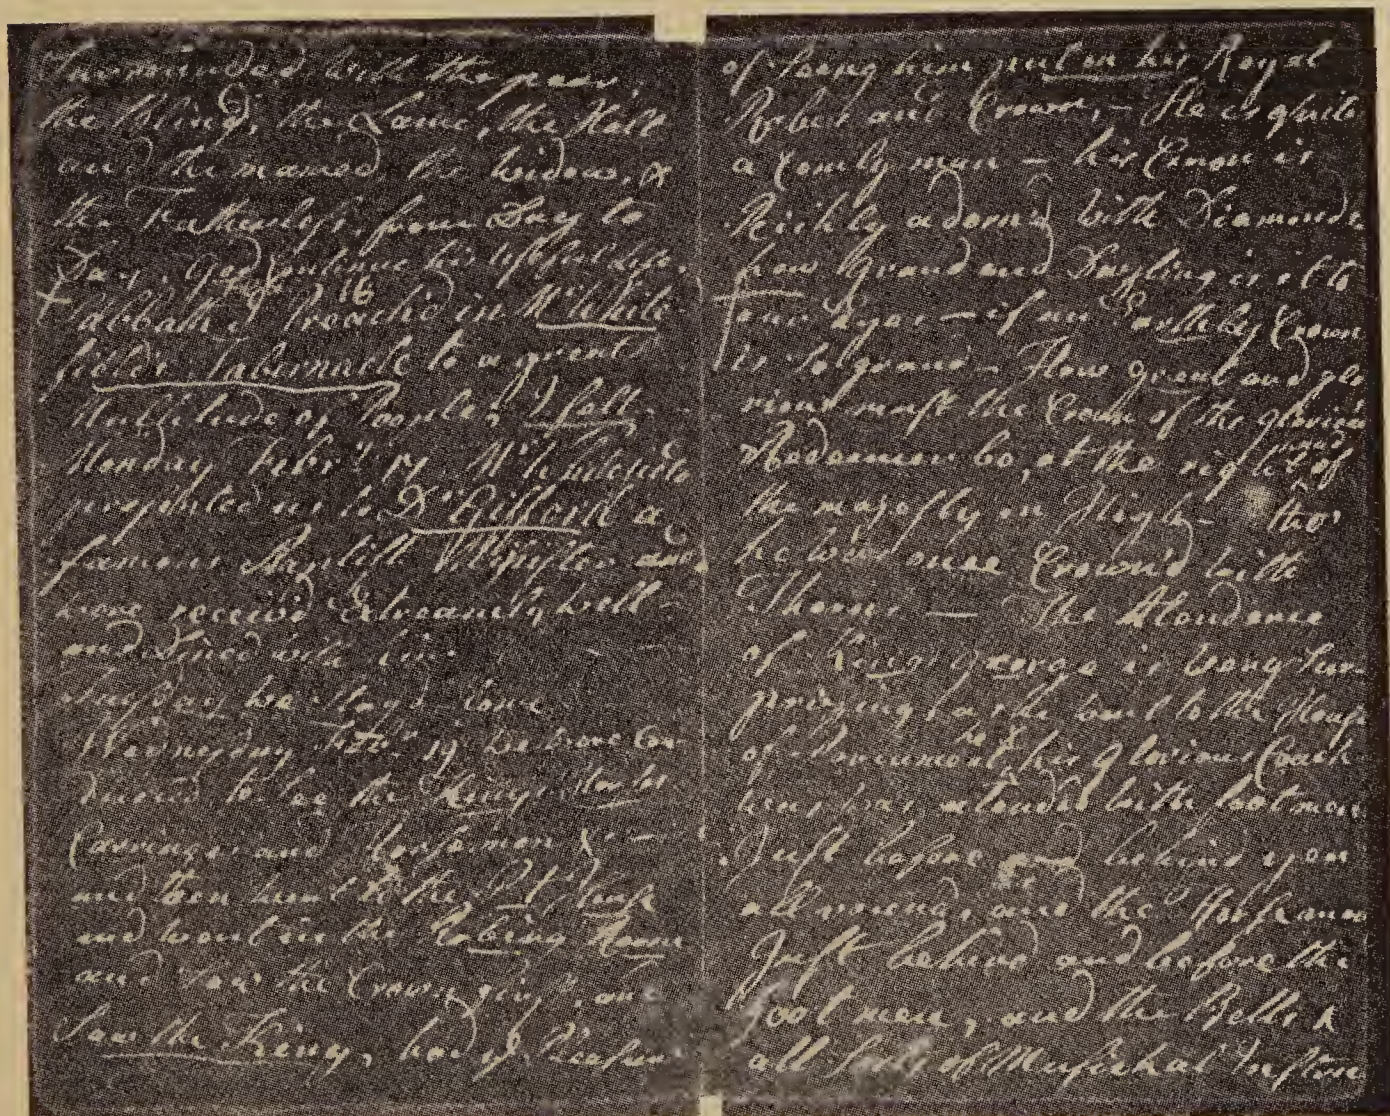 Surrounded with the poor,
the Blind, the Lame, the Halt
and the mamed the widow, &
the Fatherless, from Day to
Day. God Continue his usefull Life,
Sabbath Febr 16 I Preach'd in Mr White
fields Tabernacle to a great
Multitude of People, I felt
Monday Febr 17 Mr Whitefield
presented us to Dr Gifford a
famous Baptist Minister and
were received Extreamely well
and Dined with him
Tuesday we Stayd
Wednesday Febr 19 we were Con
ducted to see the Kings
Carriages and Horsemen &c —
and then went to the Pt House
and went in the Robing Room
and saw the Crown first, and
Saw the King, had ye Pleasure
of Seeing him put on his Royal
Robes and Crown, — He is quite
a Comly man — his Crown is
Richly adorn'd with Diamonds
how Grand and Dazling is it to
our Eyes — if an Earthly Crown
is So grand — How great and glo
rious must the Crown of the glorious
Redeemer be, at the right hand of
the majesty on High — tho'
he was once Crown'd with
Thorns — The Atendance
of King George is very Sur
prizing, as he went to the House
of Parlement he & his Glorious Coach
was atended with footmen
Just before and behind upon
all round, and the Horsemen
Just behind and before the
foot men, and the Bells &
all Sorts of Musichal Instrum